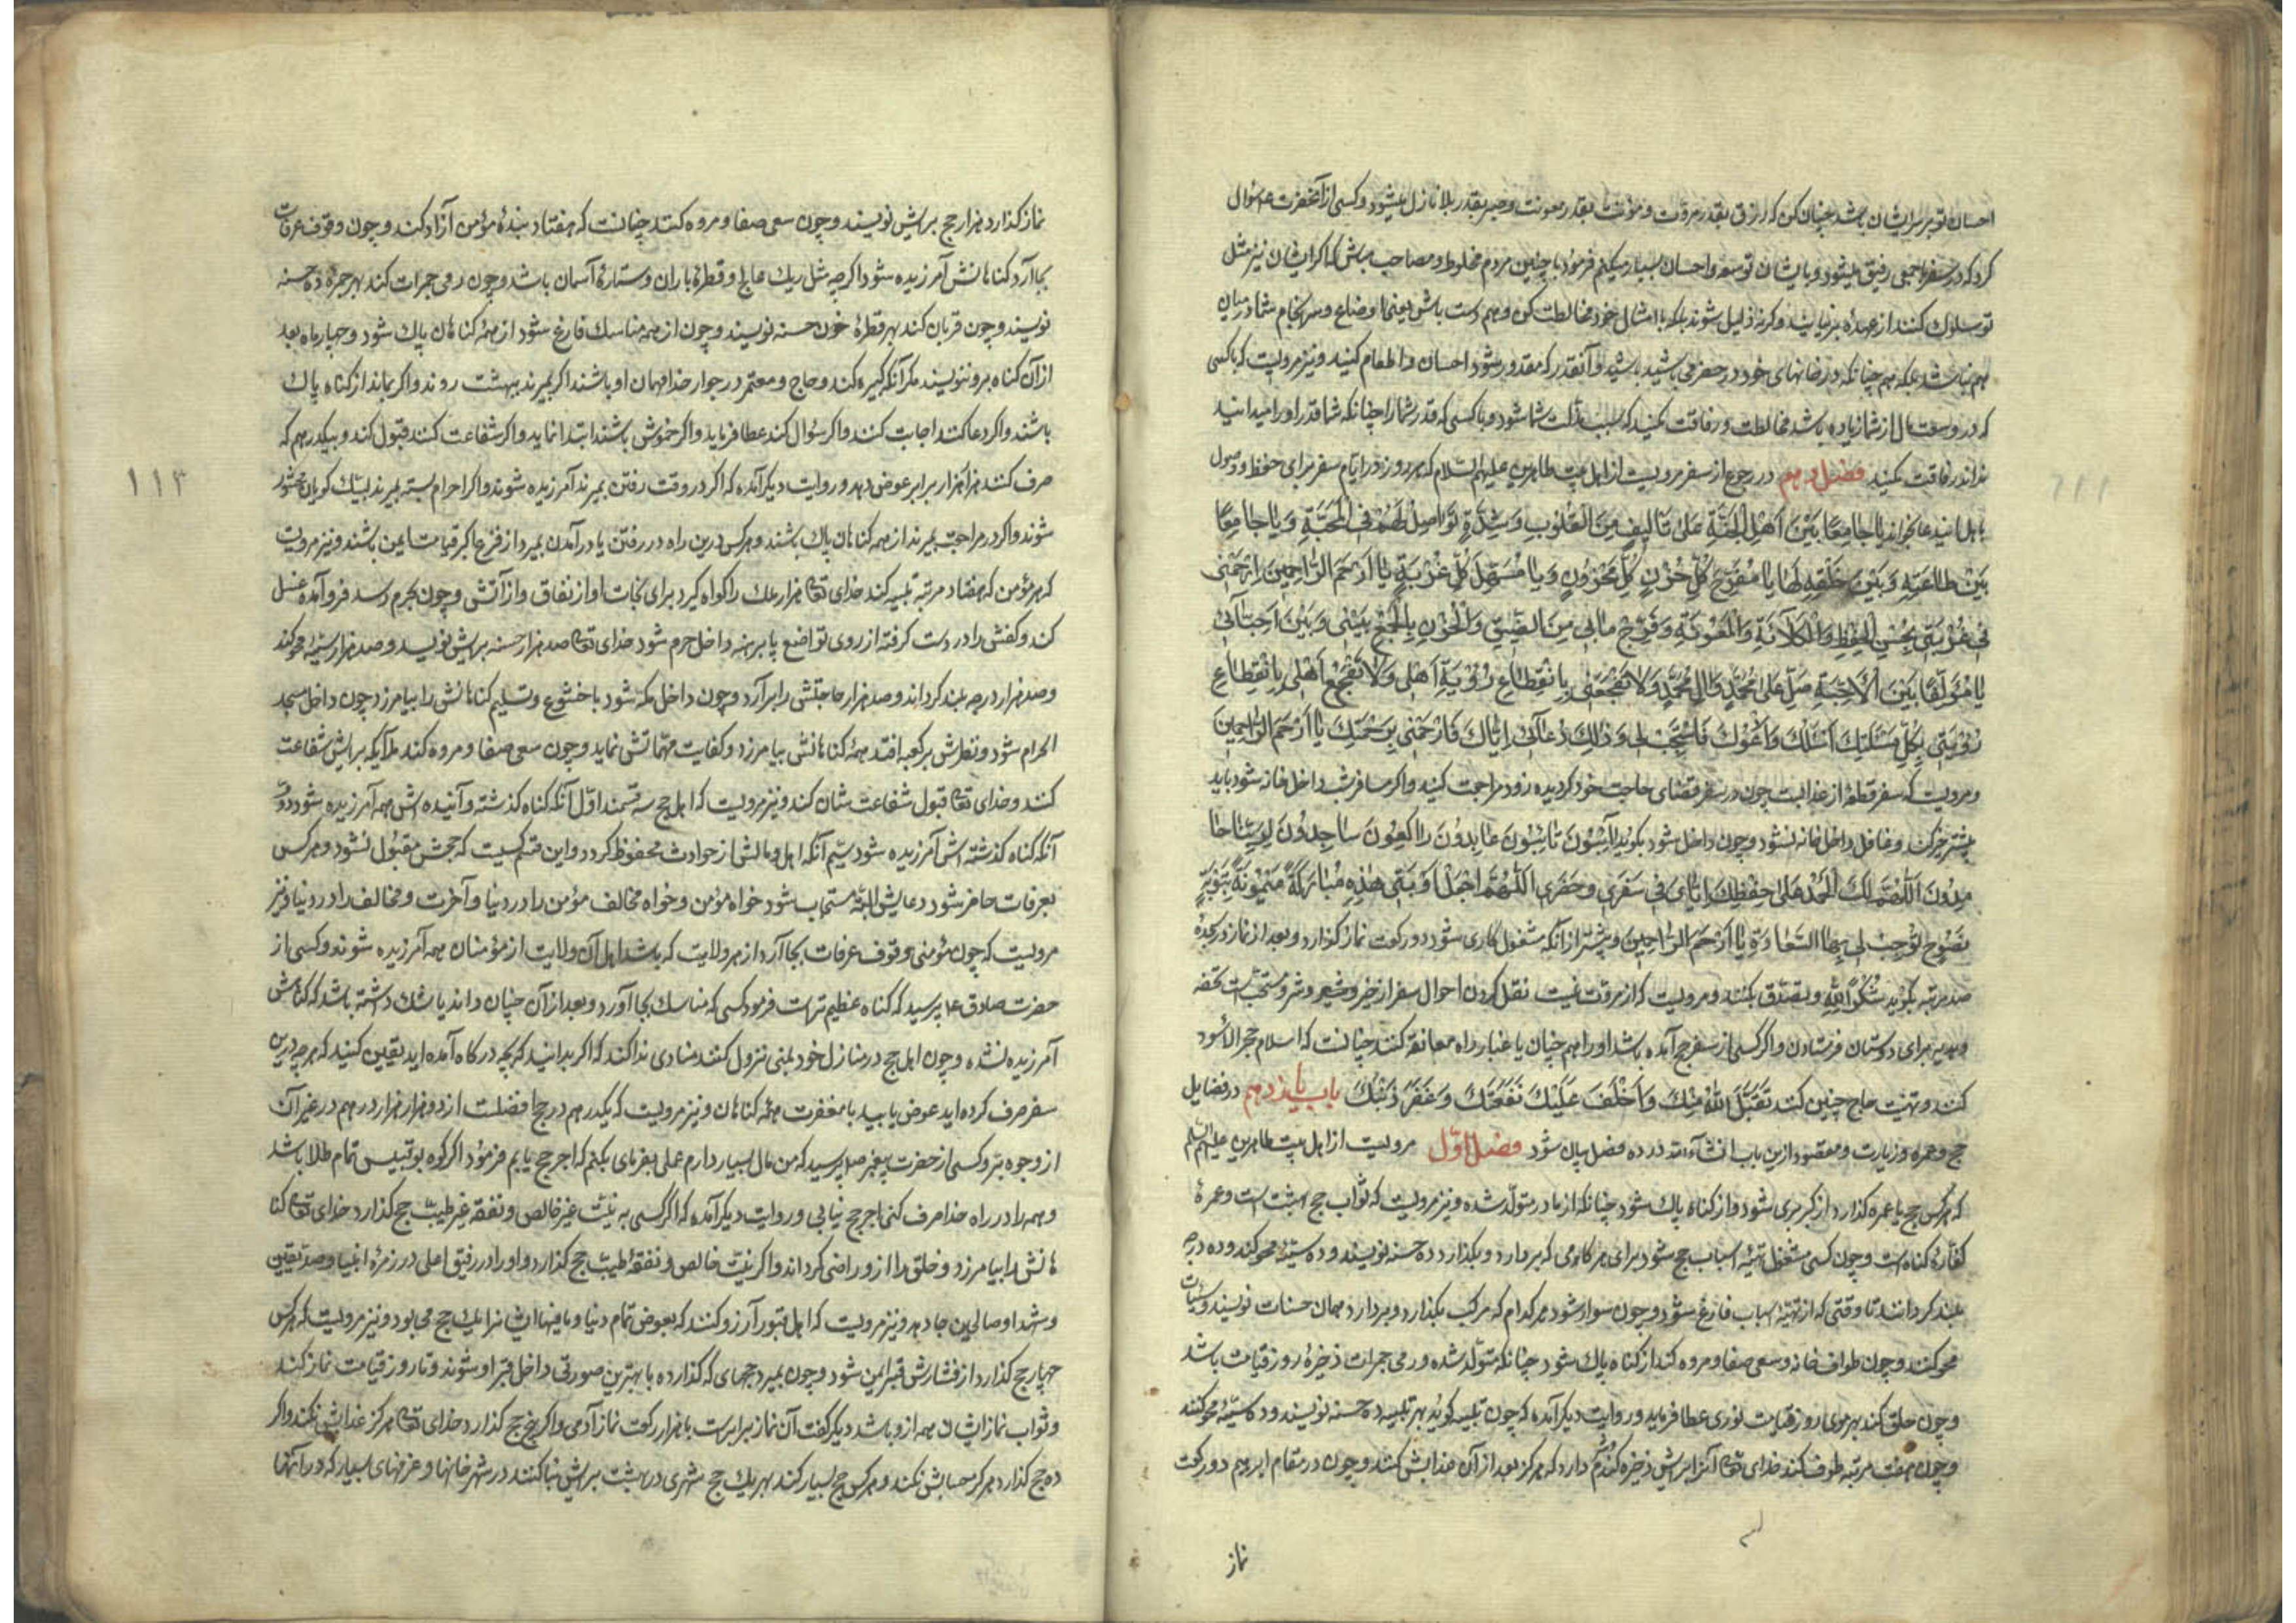 احسان تو بر سر ایشان باشد چنان کن که رزق بقدر مروّت و مؤنت بقدر معونت و صبر بقدر بلا نازل میشود و کسی از آنحضرت ع سؤال
کرد که در سفر جمعی رفیق میشود و با ایشان توسعه و احسان بسیار میکنم فرمود با چنین مردم مخلوط و مصاحب مباش که اگر ایشان نیز مثل
تو سلوک کنند از عهده بر نیایند و گرنه ذلیل شوند بلکه با امثال خود مخالطت کن و هم دست باش یعنی اوضاع و سرانجام شما در میان
هم باشد بلکه هم چنانکه در خانهای خود در حضر می باشید باشید و آنقدر که مقدور شود احسان و اطعام کنید و نیز مرویست که با کسی
که در وسعت مال از شما زیاده باشد مخالطت و رفاقت نکنید که سبب مذلت شما شود و با کسی که قدر شما را چنانکه شما قدر او را میدانید
نداند رفاقت نکنید فصل دهم در رجوع از سفر مرویست از اهل بیت طاهرین علیهم السلام که هر روز در ایام سفر برای حفظ و وصول
باهل این دعا بخواند یا جامِعًا بَیْنَ اَهْلِ الْجَنَّةِ عَلیٰ تَألیفٍ مِنَ القُلُوبِ وَ شِدَّةِ تَوٰاصُلٍ لَهُمْ فِی الْمَحَبَّةِ وَ یٰا جٰامِعًا
بَیْنَ طاعَتِهِ وَ بَیْنَ خَلْقِهِ لَهٰا یٰا مُفَرِّجَ کُلِّ حُزْنٍ کُلِّ مَحْزُونٍ وَ یٰا مُسَهِّلَ کُلِّ غُرْبَةٍ یٰا اَرْحَمَ الرّٰاحِمینَ اِرْحَمْنی
فی غُرْبَتی بِحُسْنِ الْحِفْظِ وَالْکَلآئَةِ وَالْمَعُونَةِ وَ فَرِّجْ مٰابی مِنَ الضّیقِ وَالْحُزْنِ بِالْجَمْعِ بَیْنی وَ بَیْنَ اَحِبّٰآئی
یٰا مُؤَلِّفًا بَیْنَ الْاَحِبَّةِ صَلِّ عَلیٰ مُحَمَّدٍ وَ آلِ مُحَمَّدٍ وَلا تَفْجَعْنی بِانْقِطاعِ رُؤْیَةِ اَهْلی وَلا تَفْجَعْ اَهْلی بِانْقِطاعِ
رُؤْیَتی بِکُلِّ مَسٰائِلِکَ اَسْئَلُکَ وَ اَدْعُوکَ فَاسْتَجِبْ لی وَ ذٰلِکَ دُعآئی اِیّٰاکَ فَارْحَمْنی بِرَحْمَتِکَ یٰا اَرْحَمَ الرّٰاحِمینَ
و مرویست که سفر قطعهٔ از عذابست چون در سفر قضای حاجت خود کردید زود مراجعت کنید و اگر مسافر شب داخل خانه شود باید
پیشتر خبر کند و غافل داخل خانه نشود و چون داخل شود بگوید آئِبُونَ تٰائِبُونَ عٰابِدُونَ رٰاکِعُونَ سٰاجِدُونَ لِرَبِّنٰا حٰا
مِدُونَ اَللّٰهُمَّ لَکَ الْحَمْدُ عَلیٰ حِفْظِکَ اِیّٰایَ فی سَفَری وَ حَضَری اَللّٰهُمَّ اجْعَلْ اَوْبَتی هٰذِهِ مُبٰارَکَةً مَیْمُونَةً بِتَوْبَةٍ
نَصُوحٍ تُوجِبُ لی بِهَا السَّعٰادَةَ یٰا اَرْحَمَ الرّٰاحِمینَ و پیشتر از آنکه مشغول کاری شود دو رکعت نماز گذارد و بعد از نماز در سجده
صد مرتبه بگوید شُکْرًا لِلّٰهِ و تصدّق بکند و مرویست که از مروّت نیست نقل کردن احوال سفر از خیر و شر و سنّتست تحفه
و هدیه برای دوستان فرستادن و اگر کسی از سفر حج آمده باشد او را هم چنان با غبار راه معانقه کنند چنانست که استلام حجر الاسود
کنند و تهنیت حاج چنین کند تَقَبَّلَ اللّٰهُ مِنْکَ وَ اَخْلَفَ عَلَیْکَ نَفَقَتَکَ وَ غَفَرَ ذَنْبَکَ باب یازدهم در فضایل
حج و عمره و زیارت و مقصود ازین باب انشآء الله در ده فصل بیان شود فصل اوّل مرویست از اهل بیت طاهرین علیهم السلم
که هر کس حج یا عمره گذارد از کبر بری شود و از گناه پاک شود چنانکه از مادر متولّد شده و نیز مرویست که ثواب حج بهشت است و عمرهٔ
کفارهٔ گناه است و چون کسی مشغول تهیّه اسباب حج شود برای هر گامی که بردارد و بگذارد ده حسنه نویسند و ده سیّئه محو کند و ده درجه
بلند گردانند تا وقتی که از تهیّهٔ اسباب فارغ شود و چون سوار شود هر گدام که مرکب بگذارد و بردارد همان حسنات نویسند و سیئات
محو کنند و چون طواف خانه و سعی صفا و مروه کند از گناه پاک شود چنانکه متولّد شده و رمی جمرات ذخیرهٔ روز قیامت باشد
و چون حلق کند بهر موی روز قیامت نوری عطا فرماید و روایت دیگر آمده که چون تلبیه گوید بهر تلبیه ده حسنه نویسند و ده سیّئه محو کنند
و چون هفت مرتبه طوف کند خدای تعالی آنرا برایش ذخیره دارد که هرگز بعد از آن عذابش نکند و چون در مقام ابرهیم دو رکعت
نماز
نماز گذارد هزار حج برایش نویسند و چون سعی صفا و مروه کند چنانست که هفتاد بندهٔ مؤمن آزاد کند و چون وقوف عرفات
بجا آرد گناهانش آمرزیده شود اگر چه مثل ریک عالج و قطرهٔ باران و ستارهٔ آسمان باشد و چون رمی جمرات کند بهر جمرهٔ ده حسنه
نویسند و چون قربان کند بهر قطرهٔ خون حسنه نویسند و چون از همه مناسک فارغ شود از همهٔ گناهان پاک شود و چهار ماه بعد
از آن گناه برو ننویسند مگر آنکه کبیره کند و حاج و معتمر در جوار خدا مهمان او باشند اگر بمیرند ببهشت روند و اگر بمانند از گناه پاک
باشند و اگر دعا کنند اجابت کنند و اگر سؤال کند عطا فرماید و اگر خموش باشند ابتدا نماید و اگر شفاعت کنند قبول کند و بیکدرهم که
صرف کنند هزار هزار برابر عوض دهد و روایت دیگر آمده که اگر در وقت رفتن بمیرند آمرزیده شوند و اگر احرام بسته بمیرند لبّیک گویان محشور
شوند و اگر در مراجعت بمیرند از همه گناهان پاک باشند و هر کس درین راه در رفتن یا در آمدن بمیرد از فزع اکبر قیامت ایمن باشد و نیز مرویست
که هر مؤمن که هفتاد مرتبه تلبیه کند خدای تعالی هزار ملک را گواه گیرد برای نجات او از نفاق و از آتش و چون بحرم رسد فرو آمده غسل
کند و کفش را در دست گرفته از روی تواضع پا برهنه داخل حرم شود خدای تعالی صد هزار حسنه برایش نویسد و صد هزار سیّئه محو کند
و صد هزار درجه بلند گرداند و صد هزار حاجتش را برآرد و چون داخل مکّه شود با خشوع و تسلیم گناهانش را بیامرزد چون داخل مسجد
الحرام شود و نظرش بر کعبه افتد همهٔ گناهانش بیامرزد و کفایت مهمّاتش نماید و چون سعی صفا و مروه کند ملائکه برایش شفاعت
کنند و خدای تعالی قبول شفاعت شان کند و نیز مرویست که اهل حج سه قسمند اوّل آنکه گناه گذشته و آینده اش همه آمرزیده شود دوّم
آنکه گناه گذشته اش آمرزیده شود سیّم آنکه اهل و مالش از حوادث محفوظ گردد و این قسم کسیست که حجّش مقبول نشود و هر کس
بعرفات حاضر شود دعایش البتّه مستجاب شود خواه مؤمن و خواه مخالف مؤمن را در دنیا و آخرت و مخالف را در دنیا و نیز
مرویست که چون مؤمنی وقوف عرفات بجا آرد از هر ولایت که باشد اهل آن ولایت از مؤمنان همه آمرزیده شوند و کسی از
حضرت صادق ع پرسید که گناه عظیم تراست فرمود کسی که مناسک بجا آورد و بعد از آن چنان داند یا شک داشته باشد که گناهش
آمرزیده نشده و چون اهل حج در منازل خود بمنی نزول کنند منادی ندا کند که اگر بدانید که بچه درگاه آمده اید یقین کنید که هر چه درین
سفر صرف کرده اید عوض یابید با مغفرت همهٔ گناهان و نیز مرویست که یکدرهم در حج افضلست از دو هزار هزار درهم در غیر آن
از وجوه بِرّ و کسی از حضرت پیغمبر ص پرسید که من مال بسیار دارم عملی بفرمای بکنم که اجر حج یابم فرمود اگر کوه بوقبیس تمام طلا باشد
و همه را در راه خدا صرف کنی اجر حج نیابی و روایت دیگر آمده که اگر کسی به نیّت غیر خالص و نفقه غیر طیّب حج گذارد خدای تعالی گنا
هانش را بیامرزد و خلق را ازو راضی گرداند و اگر بنیّت خالص و نفقهٔ طیّب حج گذارد او را در رفیق اعلی در زمرهٔ انبیا و صدّیقین
و شهدا و صالحین جا دهد و نیز مرویست که اهل قبور آرزو کنند که بعوض تمام دنیا و ما فیها ایشانرا یک حج می بود و نیز مرویست که هر کس
چهار حج گذارد از فشارش قبر ایمن شود و چون بمیرد حجهای که گذارده با بهترین صورتی داخل قبر او شوند و تا روز قیامت نماز کنند
و ثواب نماز ایشان همه ازو باشد دیگر گفت آن نماز برابرست با هزار رکعت نماز آدمی و اگر پنج حج گذارد خدای تعالی هرگز عذابش نکند و اگر
ده حج گذارد هرگز حسابش نکند و هر کس حج بسیار کند بهر یک حج شهری در بهشت برایش بنا کنند در شهر خانها و غرفهای بسیار که در آنها
١١٣